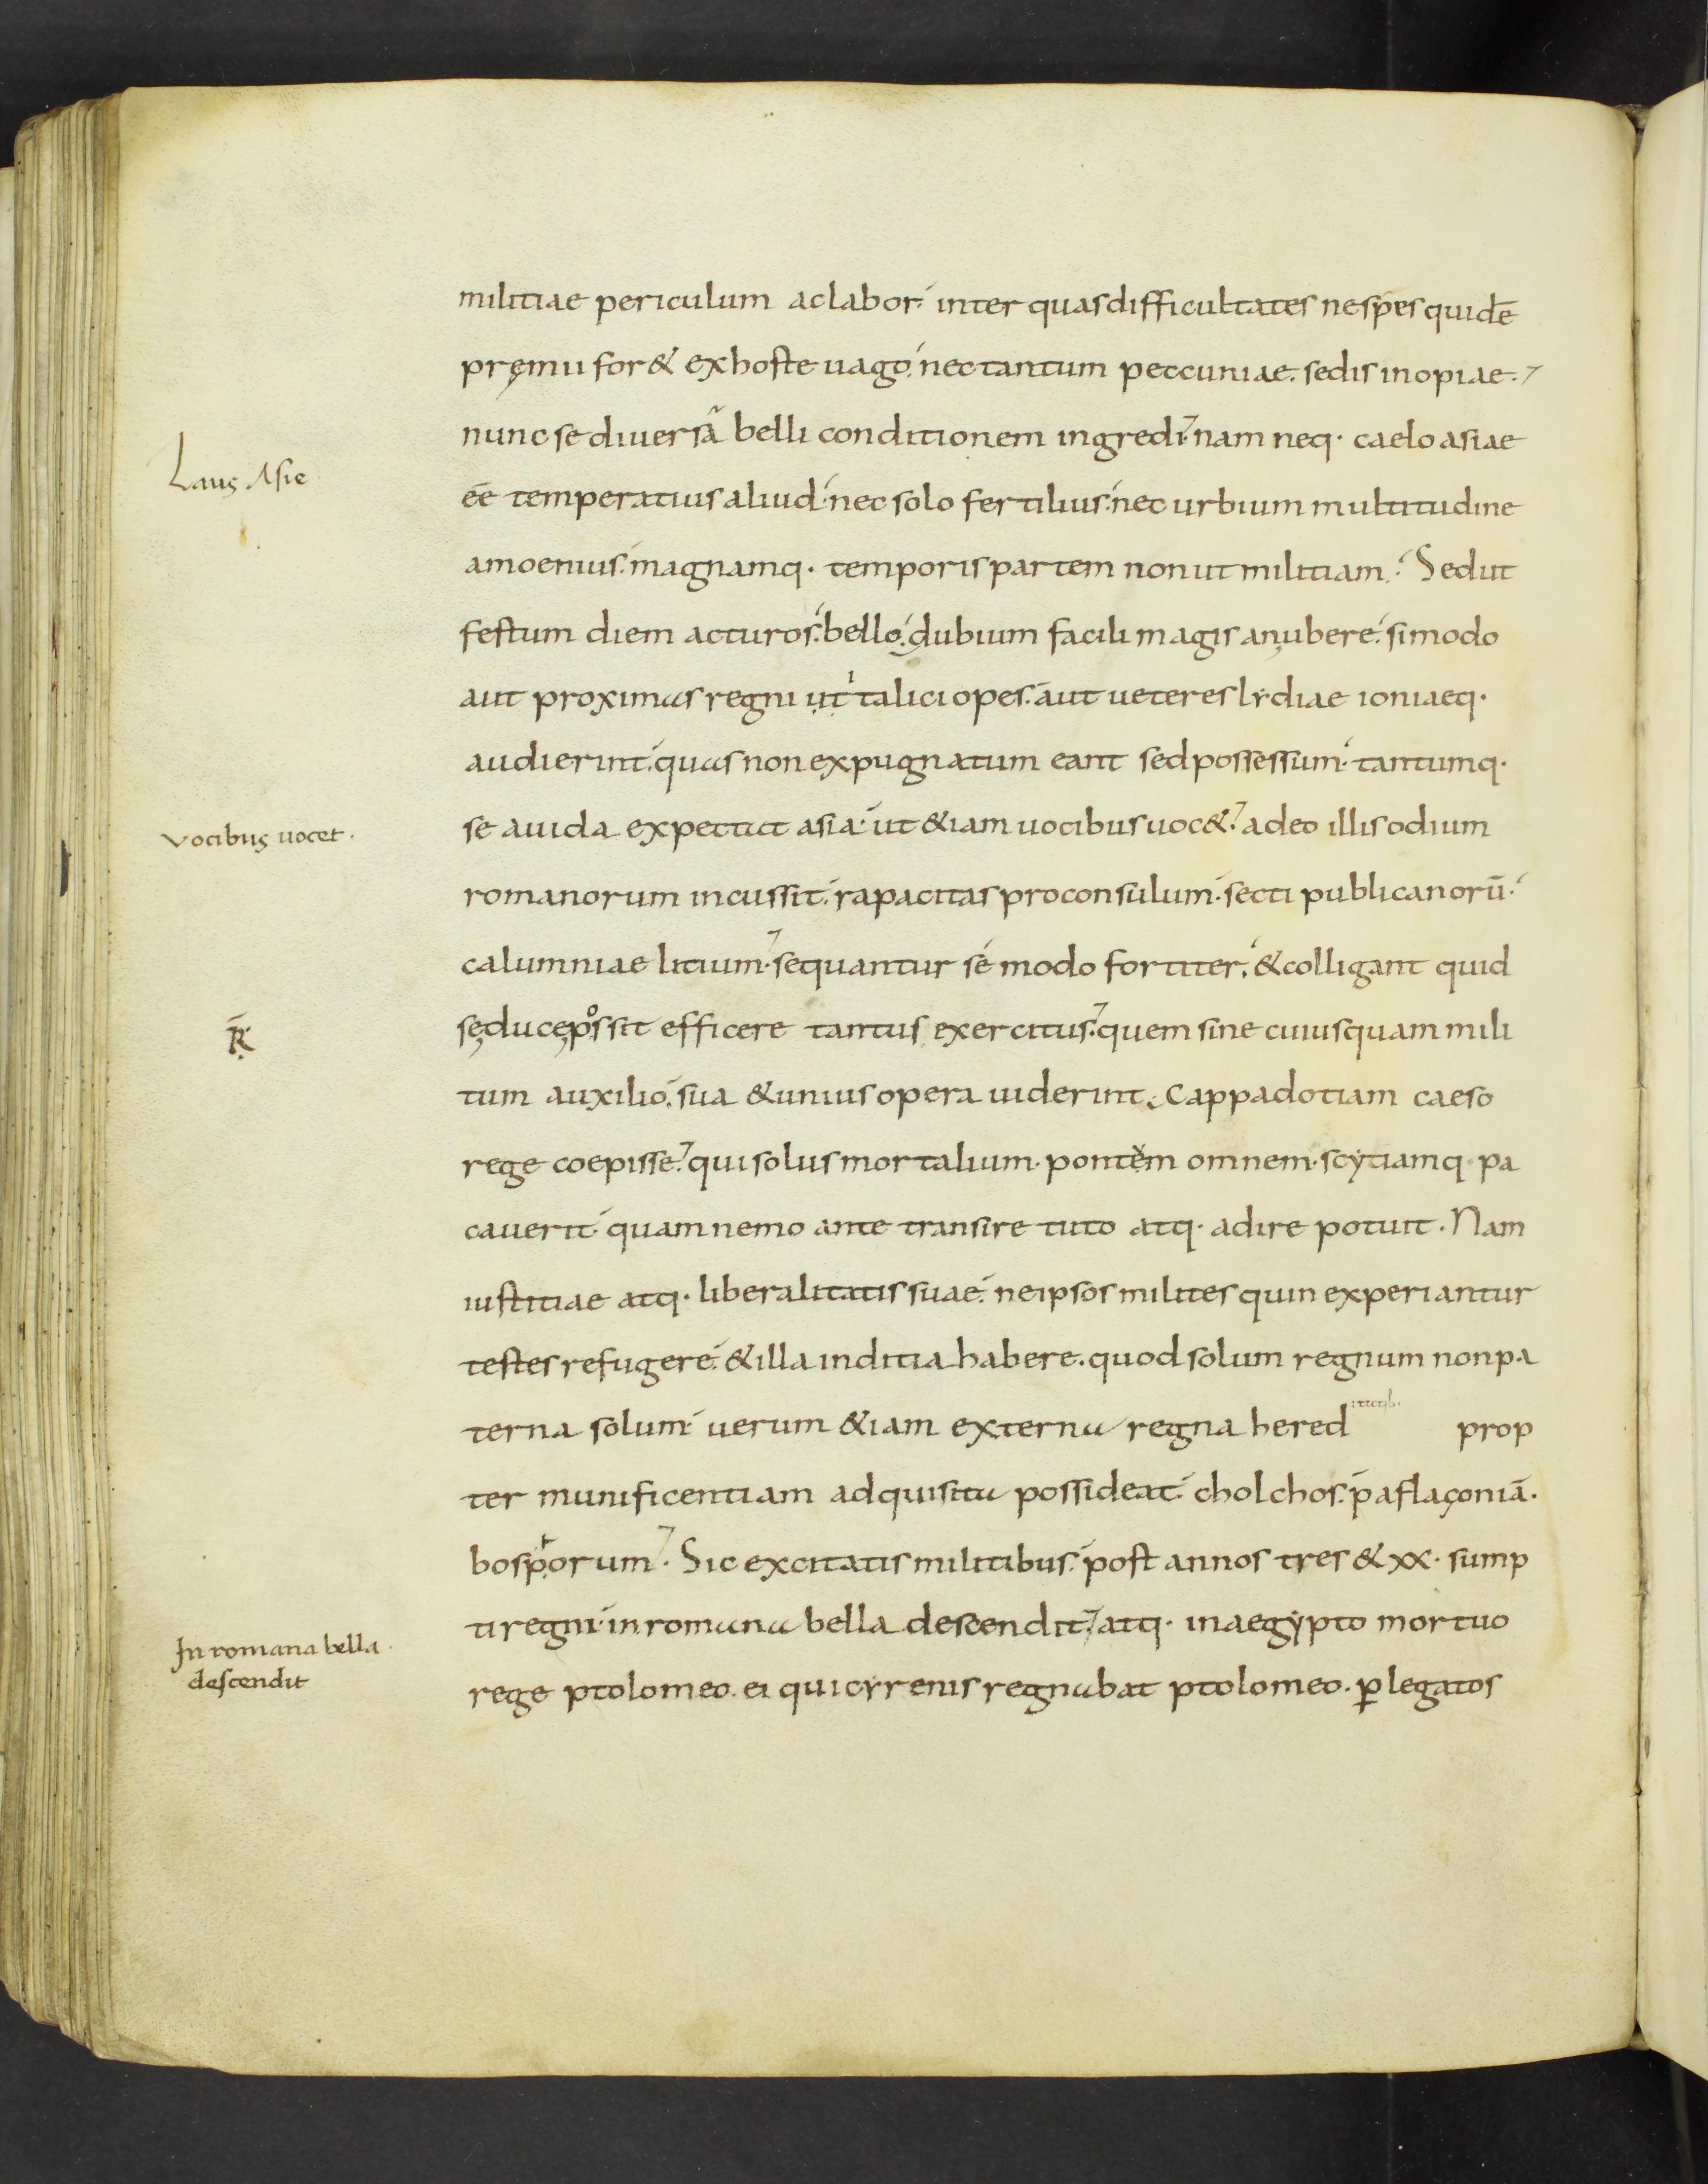 militiae periculum ac labor. inter quas difficultates ne spes quidē
pręmii for& ex hoste uago. nec tantum peccuniae. sed is inopiae.
nunc se diuersā belli conditionem ingredi. nam neq. caelo asiae
Laus Asie
eē temperatius aliud. nec solo fertilius. nec urbium multitudine
amoenius. magnamq. temporis partem non ut militiam. Sed ut
festum diem acturos. bello. dubium facili magis an ubere. si modo
aut proximas regni ut talici opes. aut ueteres lydiae ioniaeq.
audierint. quas non expugnatum eant sed possessum. tantumq.
se auida expectat asia. ut &iam uocibus uoc&. adeo illis odium
vocibus uocet.
romanorum incussit. rapacitas proconsulum. secti publicanorū.
calumniae litium. sequantur se modo fortiter. & colligant quid
se duce possit efficere tantus exercitus. quem sine cuiusquam mili
R
tum auxilio. sua & unius opera uiderint. Cappadotiam caeso
rege coepisse. qui solus mortalium. pontem omnem. scytiamq. pa
cauerit. quam nemo ante transire tuto atq. adire potuit. Nam
iustitiae atq. liberalitatis suae. ne ipsos milites quin experiantur
testes refugere. & illa inditia habere. quod solum regnum non pa
terna solum uerum &iam externa regna hered itatib. prop
ter munificentiam adquisita possideat. cholchos. paflaçoniā.
bosporum. Sic excitatis militibus. post annos tres & xx. sump
ti regni. in romana bella descendit. atq. in aegypto mortuo
In romana bella.
descendit
rege ptolomeo. ei qui cyrenis regnabat ptolomeo. ꝑ legatos